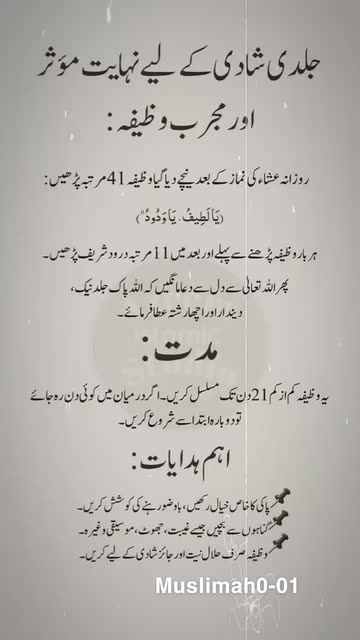 جلدی شادی کے لیے نہایت مؤثر
اور مجرب وظیفہ:
روزانہ عشاء کی نماز کے بعد نیچے دیا گیا وظیفہ 41 مرتبہ پڑھیں:
(یَا لَطِیفُ، یَا وَدُودُ)
ہر بار وظیفہ پڑھنے سے پہلے اور بعد میں 11 مرتبہ درود شریف پڑھیں۔
پھر اللہ تعالیٰ سے دل سے دعا مانگیں کہ اللہ پاک جلد نیک،
دیندار اور اچھا رشتہ عطا فرمائے۔
مدت:
یہ وظیفہ کم از کم 21 دن تک مسلسل کریں۔ اگر درمیان میں کوئی دن رہ جائے
تو دوبارہ ابتدا سے شروع کریں۔
اہم ہدایات:
پاکی کا خاص خیال رکھیں، باوضو رہنے کی کوشش کریں۔
گناہوں سے بچیں جیسے غیبت، جھوٹ، موسیقی وغیرہ۔
وظیفہ صرف حلال نیت اور جائز شادی کے لیے کریں۔
Muslimah0-01